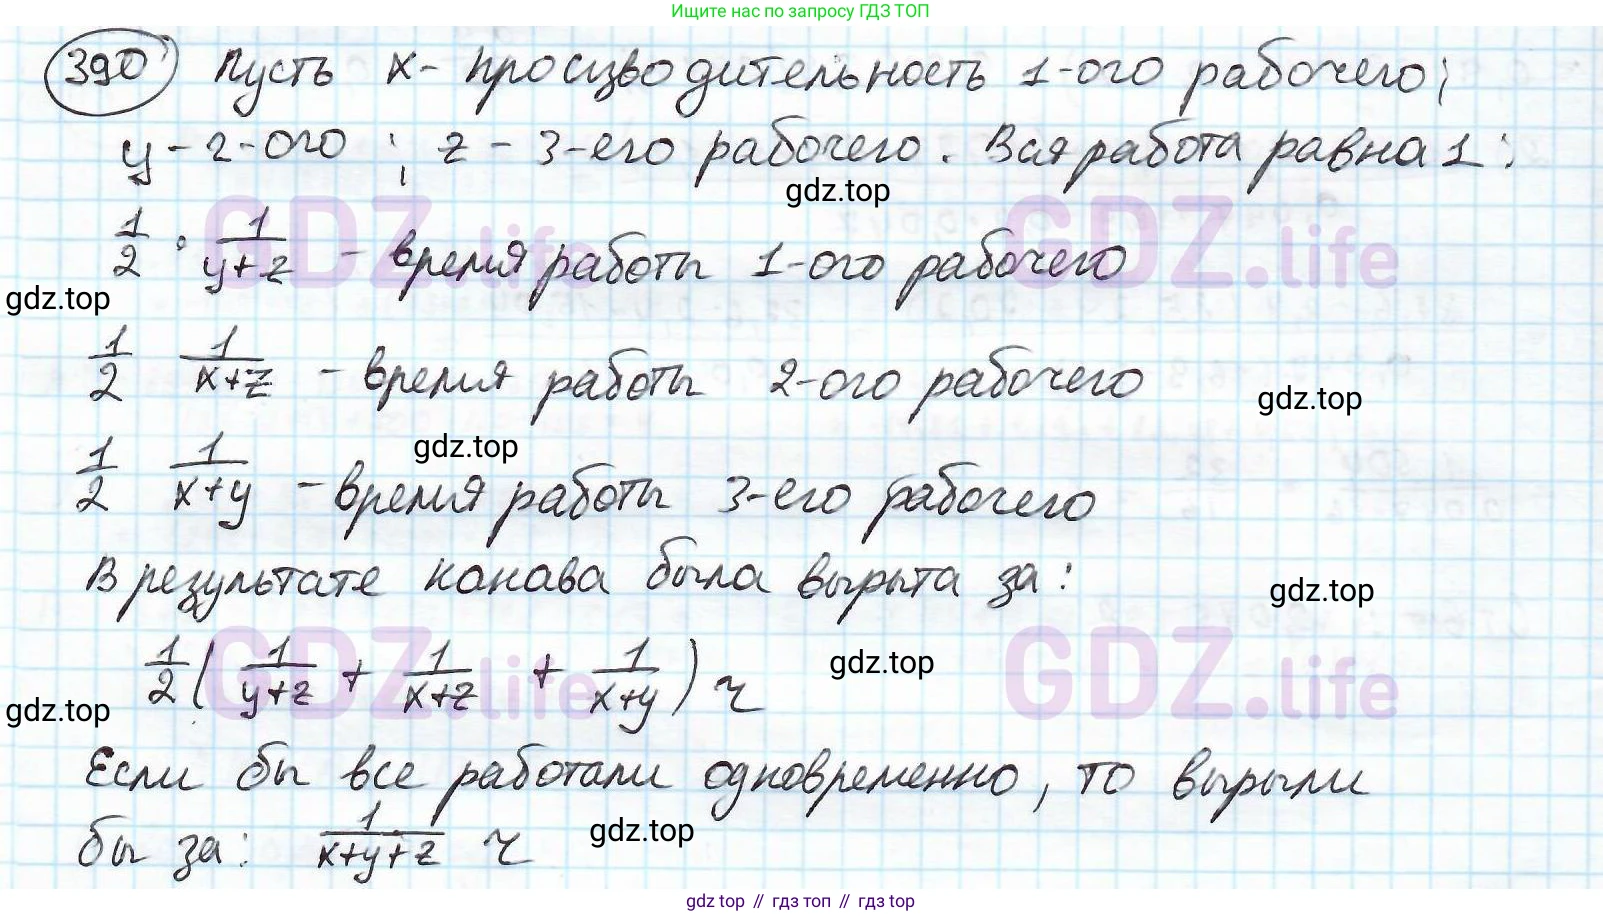 Ищите нас по запросу ГДЗ ТОП
390 Пусть x - производительность 1-ого рабочего;
y - 2-ого ; z - 3-его рабочего. Вся работа равна 1:
gdz.top
1/2 · 1/(y+z) - время работы 1-ого рабочего
GDZ.life GDZ.life
gdz.top
1/2 1/(x+z) - время работы 2-ого рабочего
gdz.top
gdz.top
1/2 1/(x+y) - время работы 3-его рабочего
В результате канава была вырыта за:
gdz.top
1/2 ( 1/(y+z) + 1/(x+z) + 1/(x+y) ) ч
GDZ.life GDZ.life
gdz.top
gdz.top
Если бы все работали одновременно, то вырыли
бы за: 1/(x+y+z) ч
gdz.top
gdz top // гдз топ // гдз top